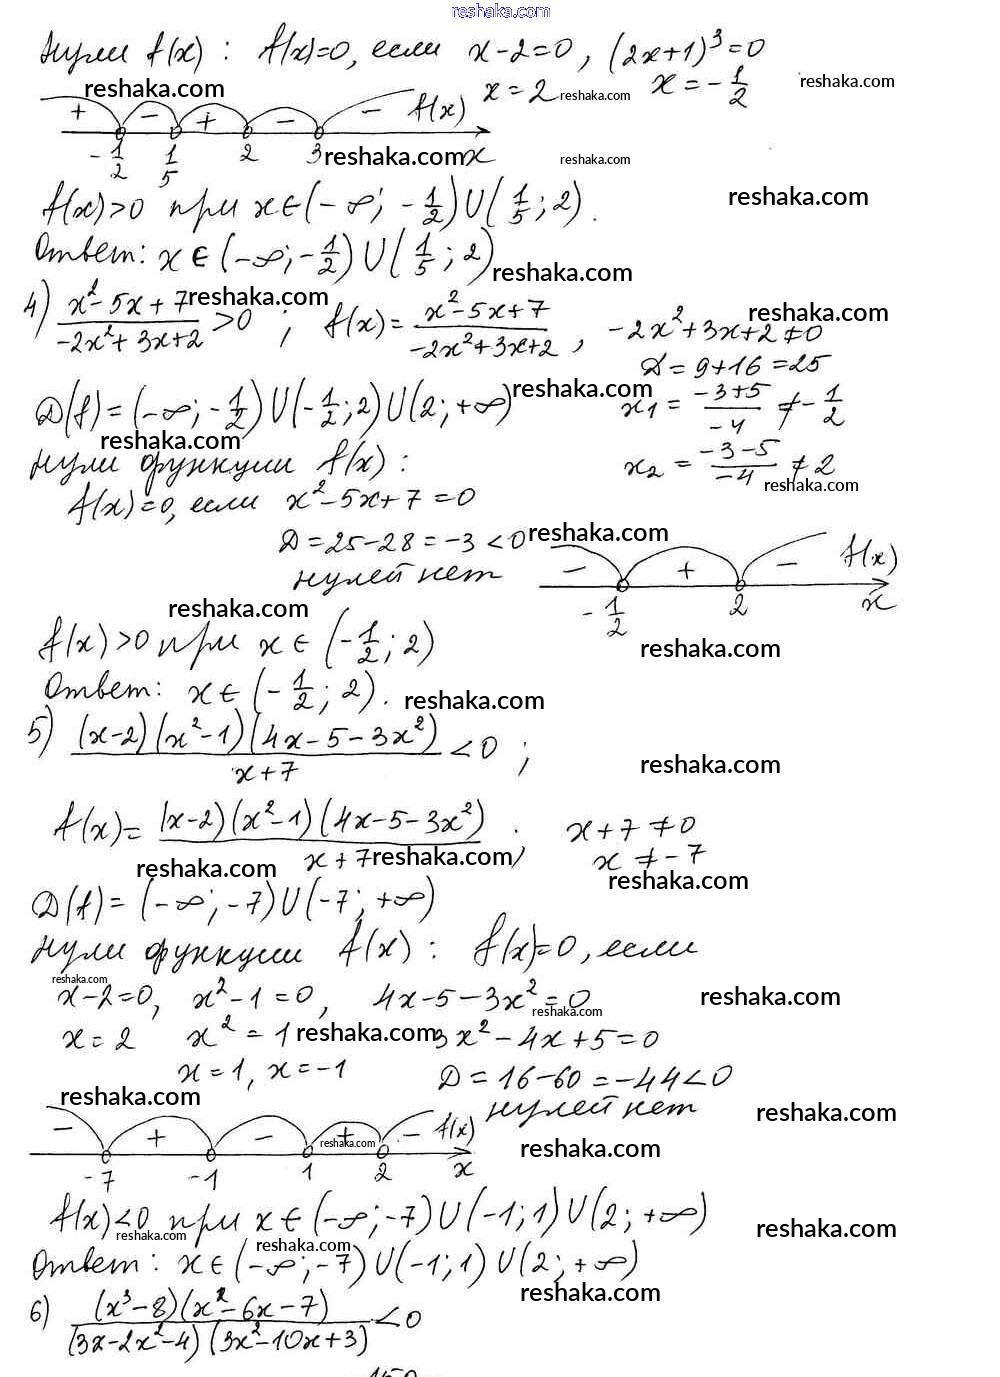 reshaka.com
нули f(x) : f(x)=0, если x-2=0, (2x+1)³=0
reshaka.com x=2 reshaka.com x=-1/2 reshaka.com
+ - + - - f(x)
-1/2 1/5 2 3 reshaka.com x reshaka.com
f(x)>0 при x∈(-∞; -1/2)∪(1/5; 2). reshaka.com
Ответ: x∈(-∞; -1/2)∪(1/5; 2) reshaka.com
4) (x²-5x+7)/(-2x²+3x+2)>0 ; f(x)=(x²-5x+7)/(-2x²+3x+2), -2x²+3x+2≠0
reshaka.com reshaka.com
Д=9+16=25
D(f)=(-∞; -1/2)∪(-1/2; 2)∪(2; +∞) reshaka.com x₁=(-3+5)/-4≠-1/2
reshaka.com
нули функции f(x): x₂=(-3-5)/-4≠2
reshaka.com
f(x)=0, если x²-5x+7=0
Д=25-28=-3<0 reshaka.com
нулей нет - + - f(x)
reshaka.com -1/2 2 x
f(x)>0 при x∈(-1/2; 2)
reshaka.com
Ответ: x∈(-1/2; 2). reshaka.com
5) (x-2)(x²-1)(4x-5-3x²)/(x+7)<0 ;
reshaka.com
f(x)=(x-2)(x²-1)(4x-5-3x²)/(x+7), x+7≠0
reshaka.com reshaka.com x≠-7
reshaka.com
D(f)=(-∞; -7)∪(-7; +∞)
нули функции f(x): f(x)=0, если
reshaka.com
x-2=0, x²-1=0, 4x-5-3x²=0 reshaka.com
reshaka.com
x=2 x²=1 reshaka.com 3x²-4x+5=0
x=1, x=-1 Д=16-60=-44<0
reshaka.com нулей нет reshaka.com
- + - + - f(x)
reshaka.com reshaka.com
-7 -1 1 2 x
f(x)<0 при x∈(-∞; -7)∪(-1; 1)∪(2; +∞)
reshaka.com reshaka.com reshaka.com
Ответ: x∈(-∞; -7)∪(-1; 1)∪(2; +∞)
reshaka.com
6) (x³-8)(x²-6x-7)/(3x-2x²-4)(3x²-10x+3)<0